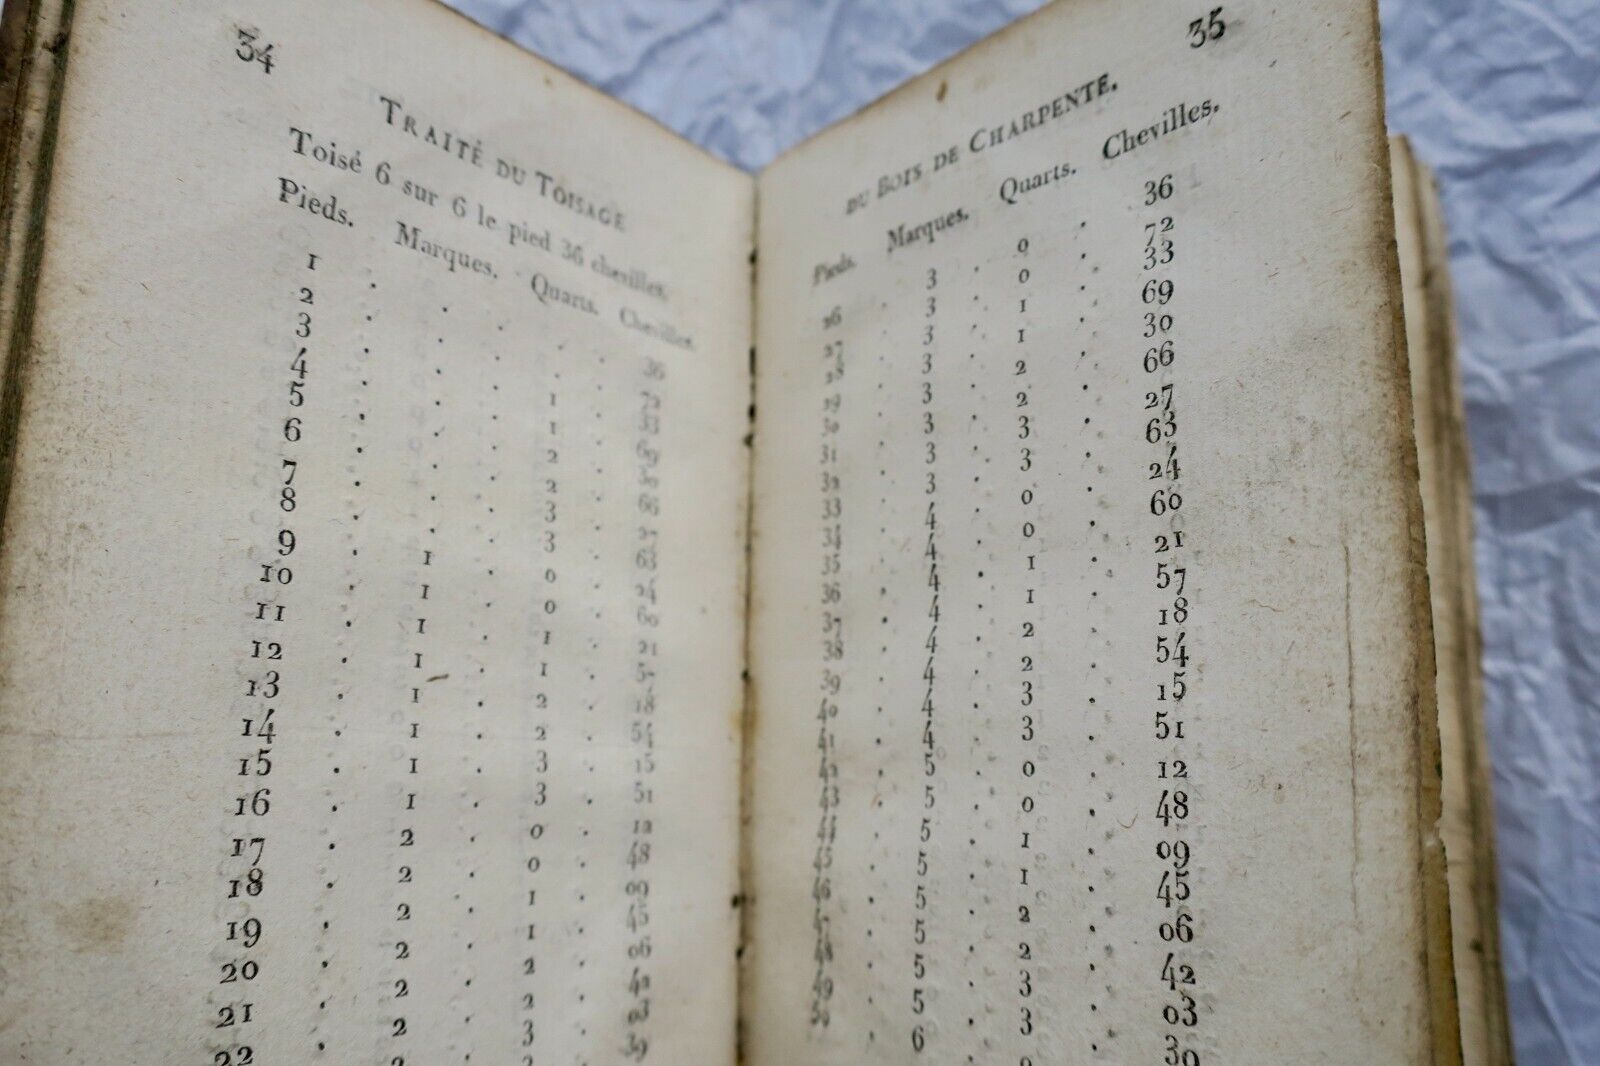 34
TRAITÉ DU TOISAGE
Toisé 6 sur 6 le pied 36 chevilles.
Pieds. Marques. Quarts. Chevilles.
1 . . . . . 36
2 . . . . . 72
3 . . 1 . 33
4 . . 1 . 69
5 . . 2 . 30
6 . . 2 . 66
7 . . 3 . 27
8 . . 3 . 63
9 . 1 . 0 . 24
10 . 1 . 0 . 60
11 . 1 . 1 . 21
12 . 1 . 1 . 57
13 . 1 . 2 . 18
14 . 1 . 2 . 54
15 . 1 . 3 . 15
16 . 1 . 3 . 51
17 . 2 . 0 . 12
18 . 2 . 0 . 48
19 . 2 . 1 . 09
20 . 2 . 1 . 45
21 . 2 . 2 . 06
22 . 2 . 2 . 42
2 . 3 . 03
3 . 39
35
DU BOIS DE CHARPENTE.
Pieds. Marques. Quarts. Chevilles.
26 . 3 . 0 . 36
27 . 3 . 0 . 72
28 . 3 . 1 . 33
29 . 3 . 1 . 69
30 . 3 . 2 . 30
31 . 3 . 2 . 66
32 . 3 . 3 . 27
33 . 3 . 3 . 63
34 . 4 . 0 . 24
35 . 4 . 0 . 60
36 . 4 . 1 . 21
37 . 4 . 1 . 57
38 . 4 . 2 . 18
39 . 4 . 2 . 54
40 . 4 . 3 . 15
41 . 4 . 3 . 51
42 . 5 . 0 . 12
43 . 5 . 0 . 48
44 . 5 . 1 . 09
45 . 5 . 1 . 45
46 . 5 . 2 . 06
47 . 5 . 2 . 42
48 . 5 . 3 . 03
49 . 5 . 3 . 39
50 . 6 . 0